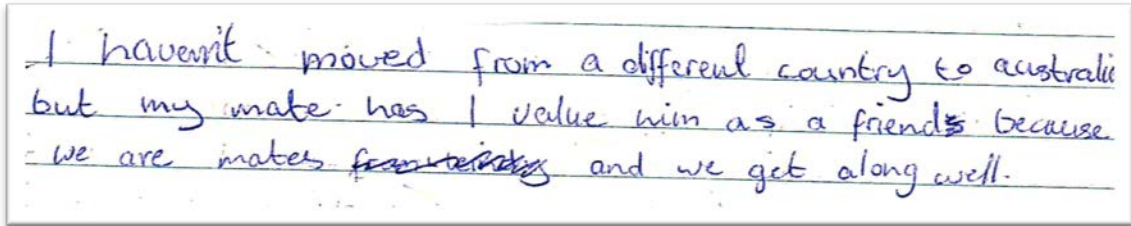 I haven't moved from a different country to australia
but my mate has I value him as a friend because
we are mates and we get along well.